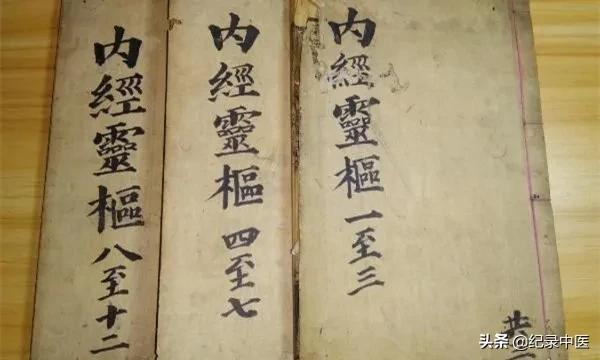 内經靈樞一至三
共
内經靈樞四至七
内經靈樞八至十二
头条 @纪录中医